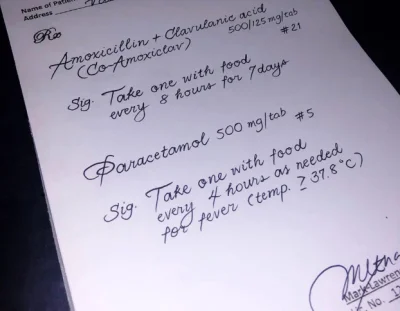 Name of Patient
Address
Rx
Amoxicillin + Clavulanic acid
(Co-Amoxiclav) 500/125 mg/tab
#21
Sig. Take one with food
every 8 hours for 7 days
Paracetamol 500 mg/tab #5
Sig. Take one with food
every 4 hours as needed
for fever (temp. ≥ 37.8°C)
Mark Lawren
No. 1